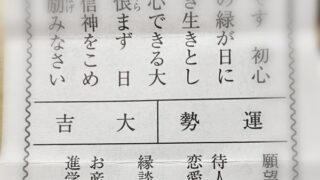 です 初心
の緑が日に
き生きとし
心できる大
恨まず 日
信神をこめ
励みなさい
運勢
大吉
願望
待人
恋愛
縁談
お産
進学